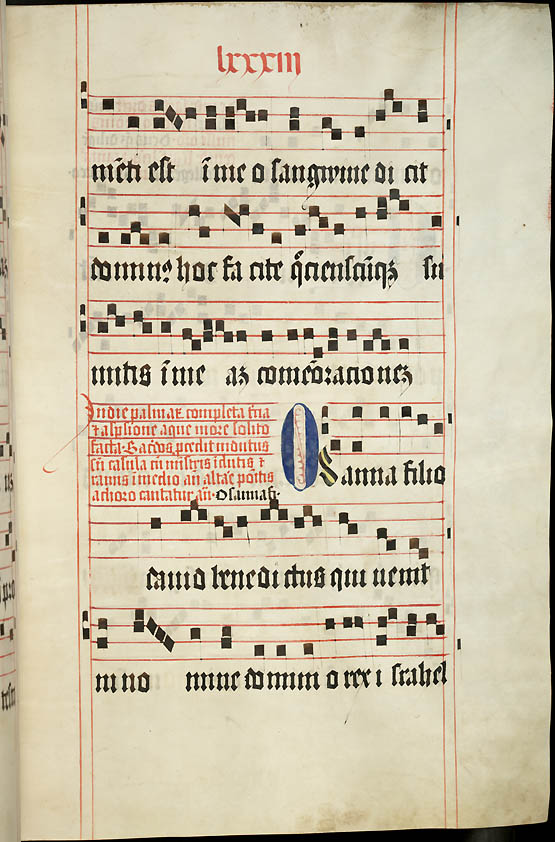 lxxxiii
mēti est ī me o sanguine di cit
dominꝰ hoc fa cite q̄cienscūqꝫ su
mitis ī me aꝫ comēoracioneꝫ
Indie palmaꝝ completa t̄cia
⁊ aspsione aque more solito
facta. Sac̄dos p̄cedit indutus
sn̄ casula cū mīstris īdutis ⁊
ramis ī medio an̄ altare poītis
a choro cantatur an̄. Osanna fi.
Osanna filio
david bene di ctus qui uenit
in no mine domini o rex i srahel